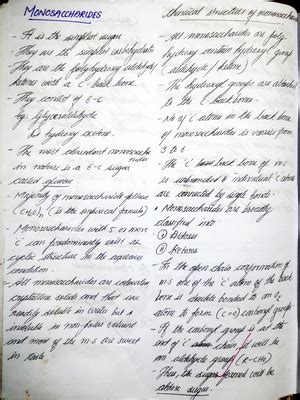 MONOSACCHARIDES
- It is the simplest sugar
- They are the simplest carbohydrate
- They are the polyhydroxy aldehyde
ketones with a C-back bone.
- They consist of 3-6 C
eg: Glyceraldehyde
Di hydroxy acetone.
- The most abundant monosaccha
ride
in nature is a 6-C sugar
called glucose
- Majority of monosaccharide follows
(CH2O)n (is the empirical formula)
- Monosaccharides with 5 or more
'C' can predominantly exist as
cyclic structure in the aqueous
condition.
- All monosaccharides are colourless
crystalline solids and that are
readily soluble in water but
insoluble in non-polar solvent
and most of the m-s are sweet
in taste.
Chemical structures of monosaccha
- All monosaccharides are poly
hydroxy contain hydroxyl group
(aldehyde / ketone)
- The hydroxyl groups are attached
to the C-back bone.
- No of C atoms in the back bone
of monosaccharides is varies from
3 to 6
- The 'C' back bone of m-s
is and individual 'C' atoms
are connected by single bonds
- Monosaccharides are broadly
classified into
① Aldoses
② Ketoses
- In the open chain conformation of
m-s one of the 'C' atom of the back
bone is double bonded to an O2
atom to form (C=O) carbonyl group
- If the carbonyl group is at the
end of 'C' chain it will be
an aldehyde group (R-CHO)
- Then the sugar formed will be
aldose sugar.